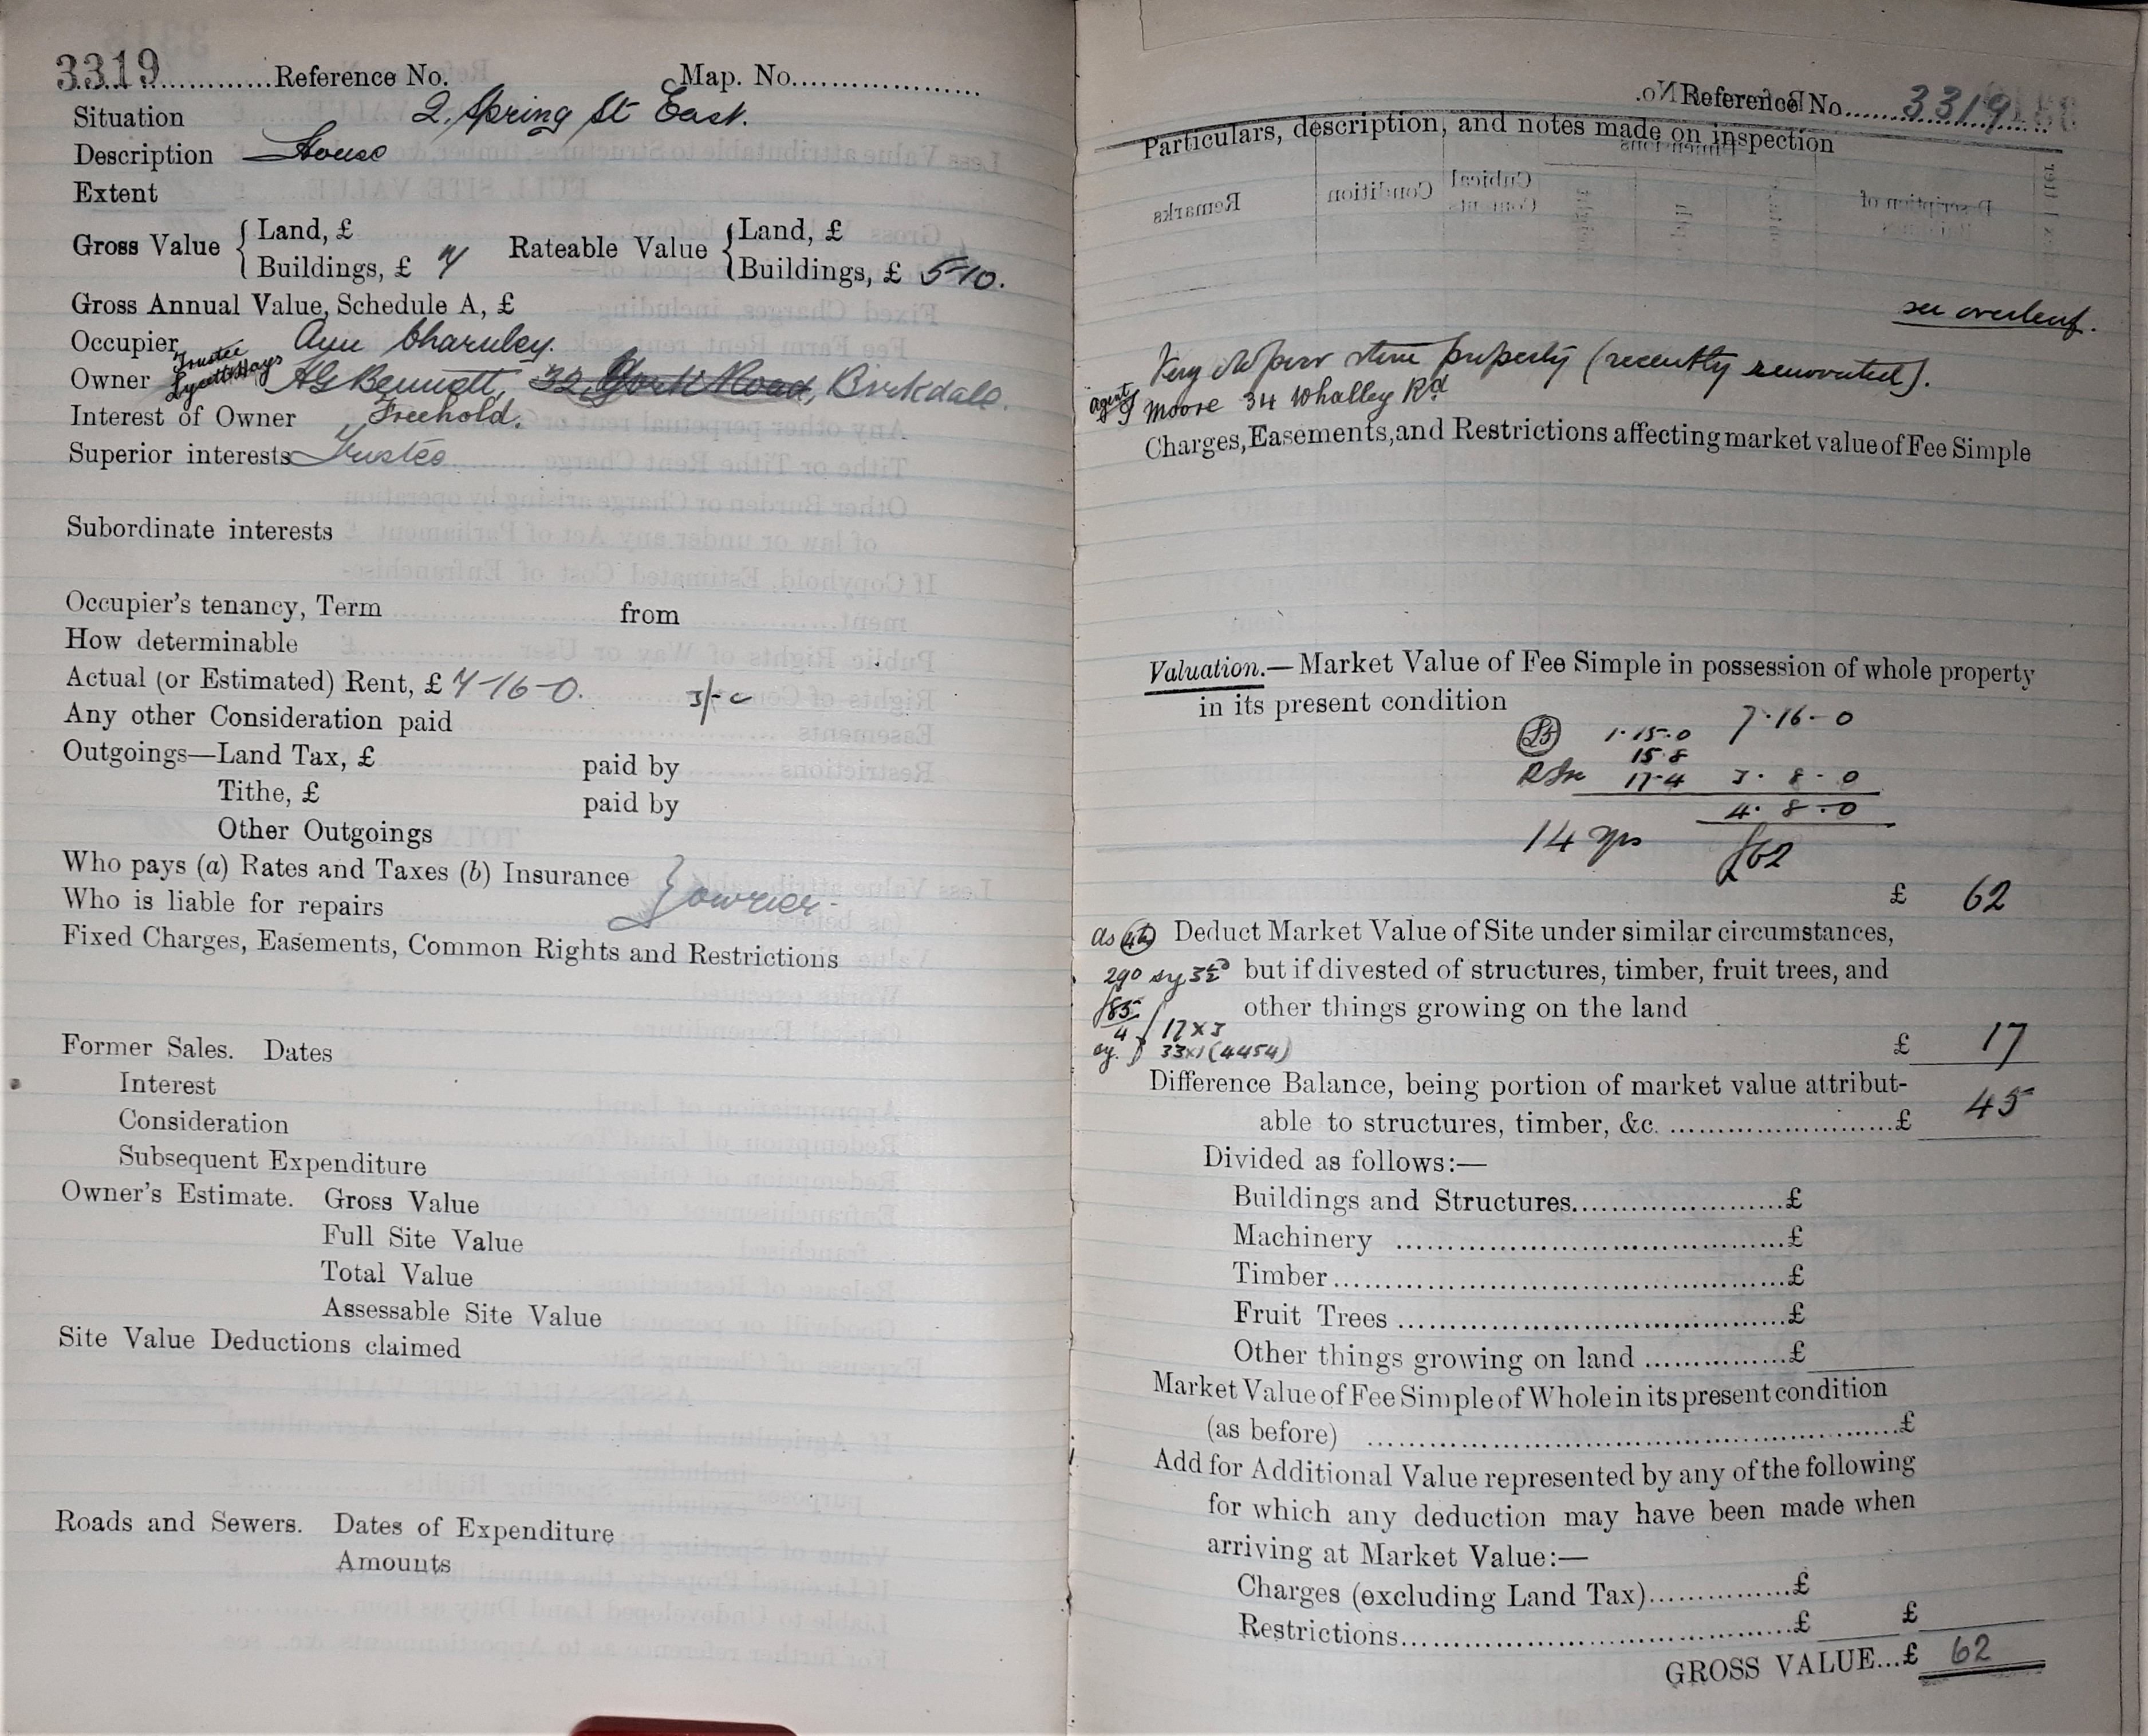 3319 Reference No. Map. No.
Situation 2, Spring St East.
Description House
Extent
Gross Value { Land, £ Rateable Value { Land, £
Buildings, £ 7 Buildings, £ 5-10.
Gross Annual Value, Schedule A, £
Occupier Ann Charnley.
Trustee
Lycett Hays
Owner AG Bennett, 32, York Road, Birkdale.
Interest of Owner Freehold.
Superior interests Trustee
Subordinate interests
Occupier's tenancy, Term from
How determinable
Actual (or Estimated) Rent, £ 7-16-0. 3/-
Any other Consideration paid
Outgoings—Land Tax, £ paid by
Tithe, £ paid by
Other Outgoings
Who pays (a) Rates and Taxes (b) Insurance } owner
Who is liable for repairs
Fixed Charges, Easements, Common Rights and Restrictions
Former Sales. Dates
Interest
Consideration
Subsequent Expenditure
Owner's Estimate. Gross Value
Full Site Value
Total Value
Assessable Site Value
Site Value Deductions claimed
Roads and Sewers. Dates of Expenditure
Amounts
Reference No. 3319
Particulars, description, and notes made on inspection
see overleaf.
Very old poor stone property (recently renovated).
agent J Moore 34 Whalley Rd
Charges, Easements, and Restrictions affecting market value of Fee Simple
Valuation.—Market Value of Fee Simple in possession of whole property
in its present condition
£5 1.15.0 7.16-0
15.8
17.4 3.8-0
4.8-0
14 yrs £62
£ 62
as Deduct Market Value of Site under similar circumstances,
290 sy but if divested of structures, timber, fruit trees, and
£85 other things growing on the land
4 17 x 3
33x1 (4454) £ 17
Difference Balance, being portion of market value attribut-
able to structures, timber, &c. £ 45
Divided as follows:—
Buildings and Structures £
Machinery £
Timber £
Fruit Trees £
Other things growing on land £
Market Value of Fee Simple of Whole in its present condition
(as before) £
Add for Additional Value represented by any of the following
for which any deduction may have been made when
arriving at Market Value:—
Charges (excluding Land Tax) £
Restrictions £ £
GROSS VALUE...£ 62